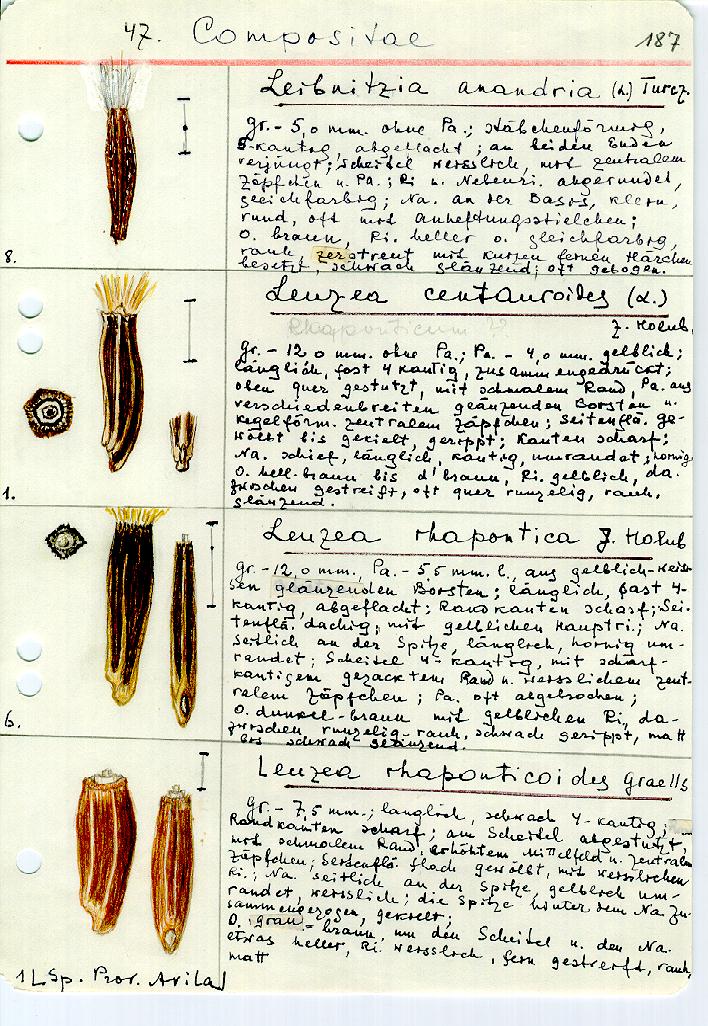 47. Compositae 187
Leibnitzia anandria (L.) Turcz.
gr. - 5,0 mm. ohne Pa.; stäbchenförmig,
5-kantig, abgeflacht; an beiden Enden
verjüngt; Scheitel weisslich, mit zentralem
Zäpfchen u. Pa.; Ri u. Nebenri. abgerundet,
gleichfarbig; Na. an der Basis, klein,
rund, oft mit Anheftungsstielchen;
O. braun, Ri. heller o. gleichfarbig,
rauh, zerstreut mit kurzen feinen Härchen
besetzt, schwach glänzend; oft gebogen.
8.
Leuzea centauroides (L.)
J. Holub.
Rhaponticum ??
gr. - 12,0 mm. ohne Pa.; Pa. - 4,0 mm. gelblich;
länglich, fast 4 kantig, zusammengedrückt;
oben quer gestutzt, mit schmalem Rand, Pa. aus
verschiedenbreiten glänzenden Borsten u.
kegelförm. zentralem Zäpfchen; Seitenflä. ge-
wölbt bis gekielt, gerippt; Kanten scharf;
Na. schief, länglich, kantig, umrandet; hornig
O. hell-braun bis d'braun, Ri. gelblich, da-
zwischen gestreift, oft quer runzelig, rauh,
glänzend.
1.
Leuzea rhapontica J. Holub
gr. - 12,0 mm., Pa. - 5,5 mm. l., aus gelblich-weis-
sen glänzenden Borsten; länglich, fast 4-
kantig, abgeflacht; Randkanten scharf; Sei-
tenflä. dachig, mit gelblichen Hauptri.; Na.
seitlich an der Spitze, länglich, hornig um-
randet; Scheitel 4-kantig, mit scharf-
kantigem gezacktem Rand u. weisslichem zent-
ralem Zäpfchen; Pa. oft abgebrochen;
O. dunkel-braun mit gelblichen Ri., da-
zwischen runzelig-rauh, schwach gerippt, matt
bis schwach glänzend.
6.
Leuzea rhaponticoides Graells
gr. - 7,5 mm.; länglich, schwach 4-kantig;
Randkanten scharf; am Scheitel abgestutzt,
mit schmalem Rand, erhöhtem Mittelfeld u. zentralem
Zäpfchen; Seitenflä. flach gewölbt, mit weisslichen
Ri.; Na. seitlich an der Spitze, gelblich um-
randet, weisslich; die Spitze hinter dem Na. zu-
sammengezogen, gekielt;
O. grau-braun, um den Scheitel u. den Na.
etwas heller, Ri. weisslich, fein gestreift, rauh,
matt
1 L Sp. Prov. Avila